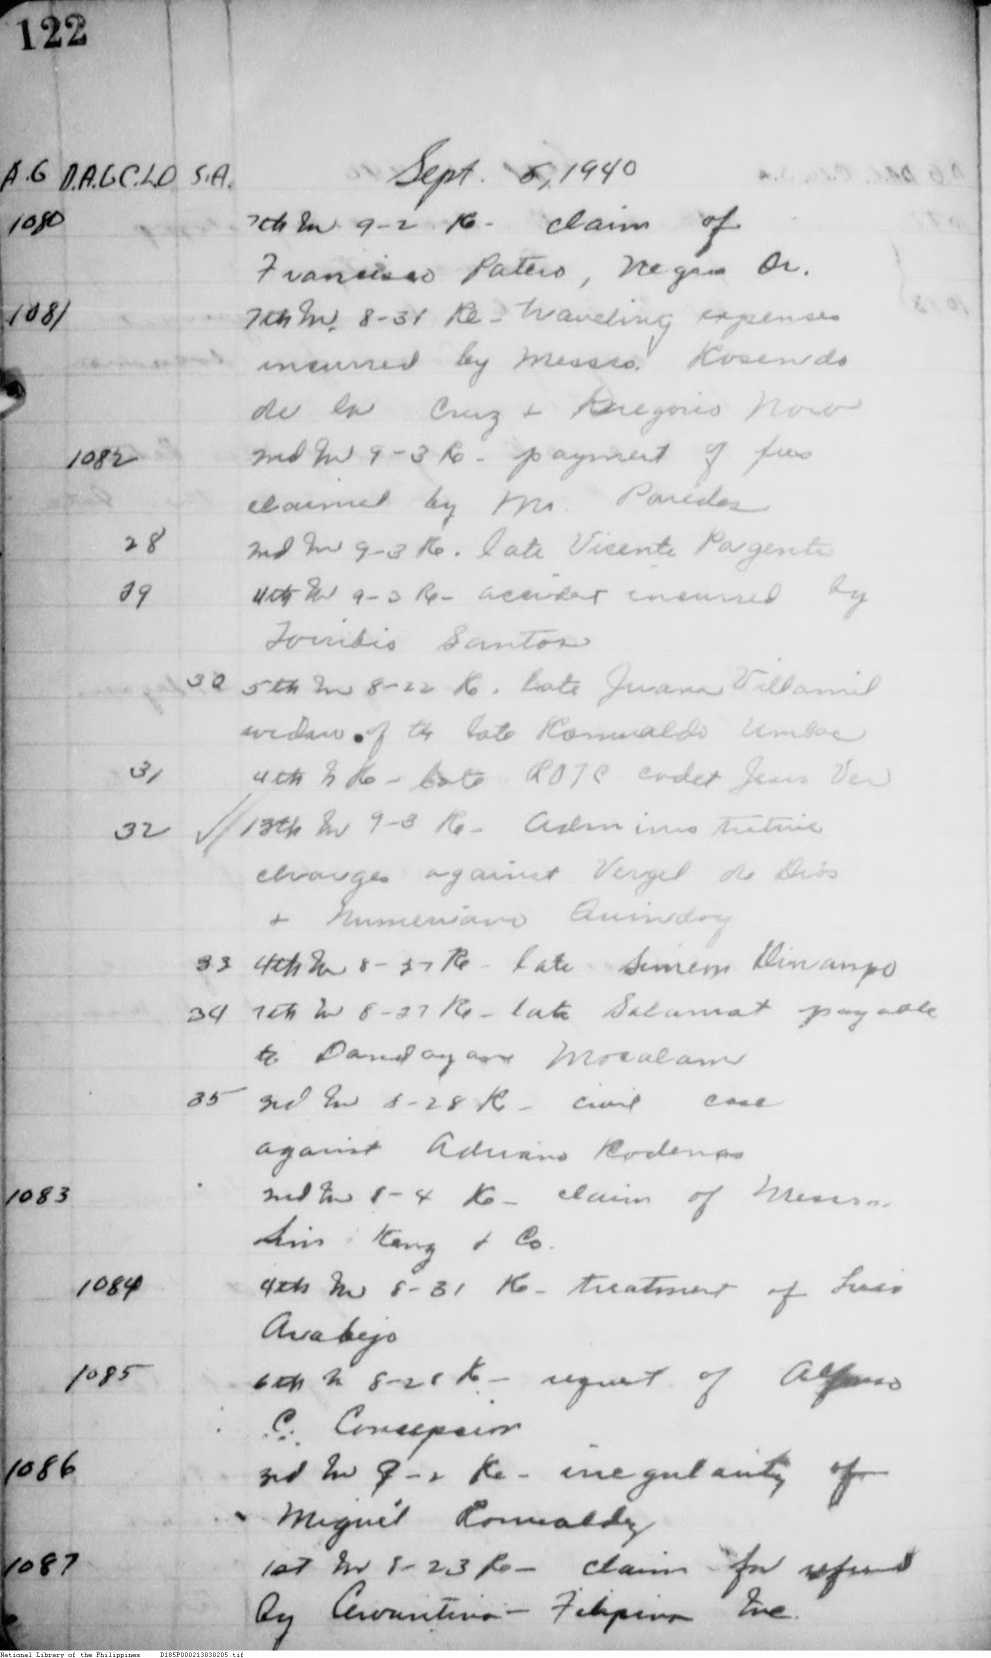 122
A.G D.A.G C.L.D S.A. Sept. 5, 1940
1080 7th In 9-2 Re- claim of
Francisco Patero, Negros Or.
1081 7th In. 8-31 Re- traveling expenses
incurred by Messrs. Rosendo
de la Cruz & Gregorio
1082 2nd In 9-3 Re- payment of fees
claimed by Mr. Paredes
28 2nd In 9-3 Re. late Vicente Pargente
29 4th In 9-3 Re- accident incurred by
Toribio Santos
30 5th In 8-22 Re. late Juana Villamil
widow of the late Romualdo
31 4th In Re- late ROTC cadet Jesus Ver
32 13th In 9-3 Re- Administrative
charges against Vergel de Dios
& Numeriano Quindoy
33 4th In 8-27 Re- late Simeon Dinampo
34 7th In 8-27 Re- late Salamat payable
to Dandayan Mocalam
35 3rd In 8-28 Re- civil case
against Adriano Rodenas
1083 2nd In 8-4 Re- claim of Messrs.
Lim Kang & Co.
1084 4th In 8-31 Re- treatment of Luis
Arabejo
1085 6th In 8-28 Re- request of Alfonso
C. Concepcion
1086 3rd In 9-2 Re- irregularity of
Miguel Romualdez
1087 1st In 8-23 Re- claim for refund
by Filipina Inc.
National Library of the Philippines D185P000213830205.tif